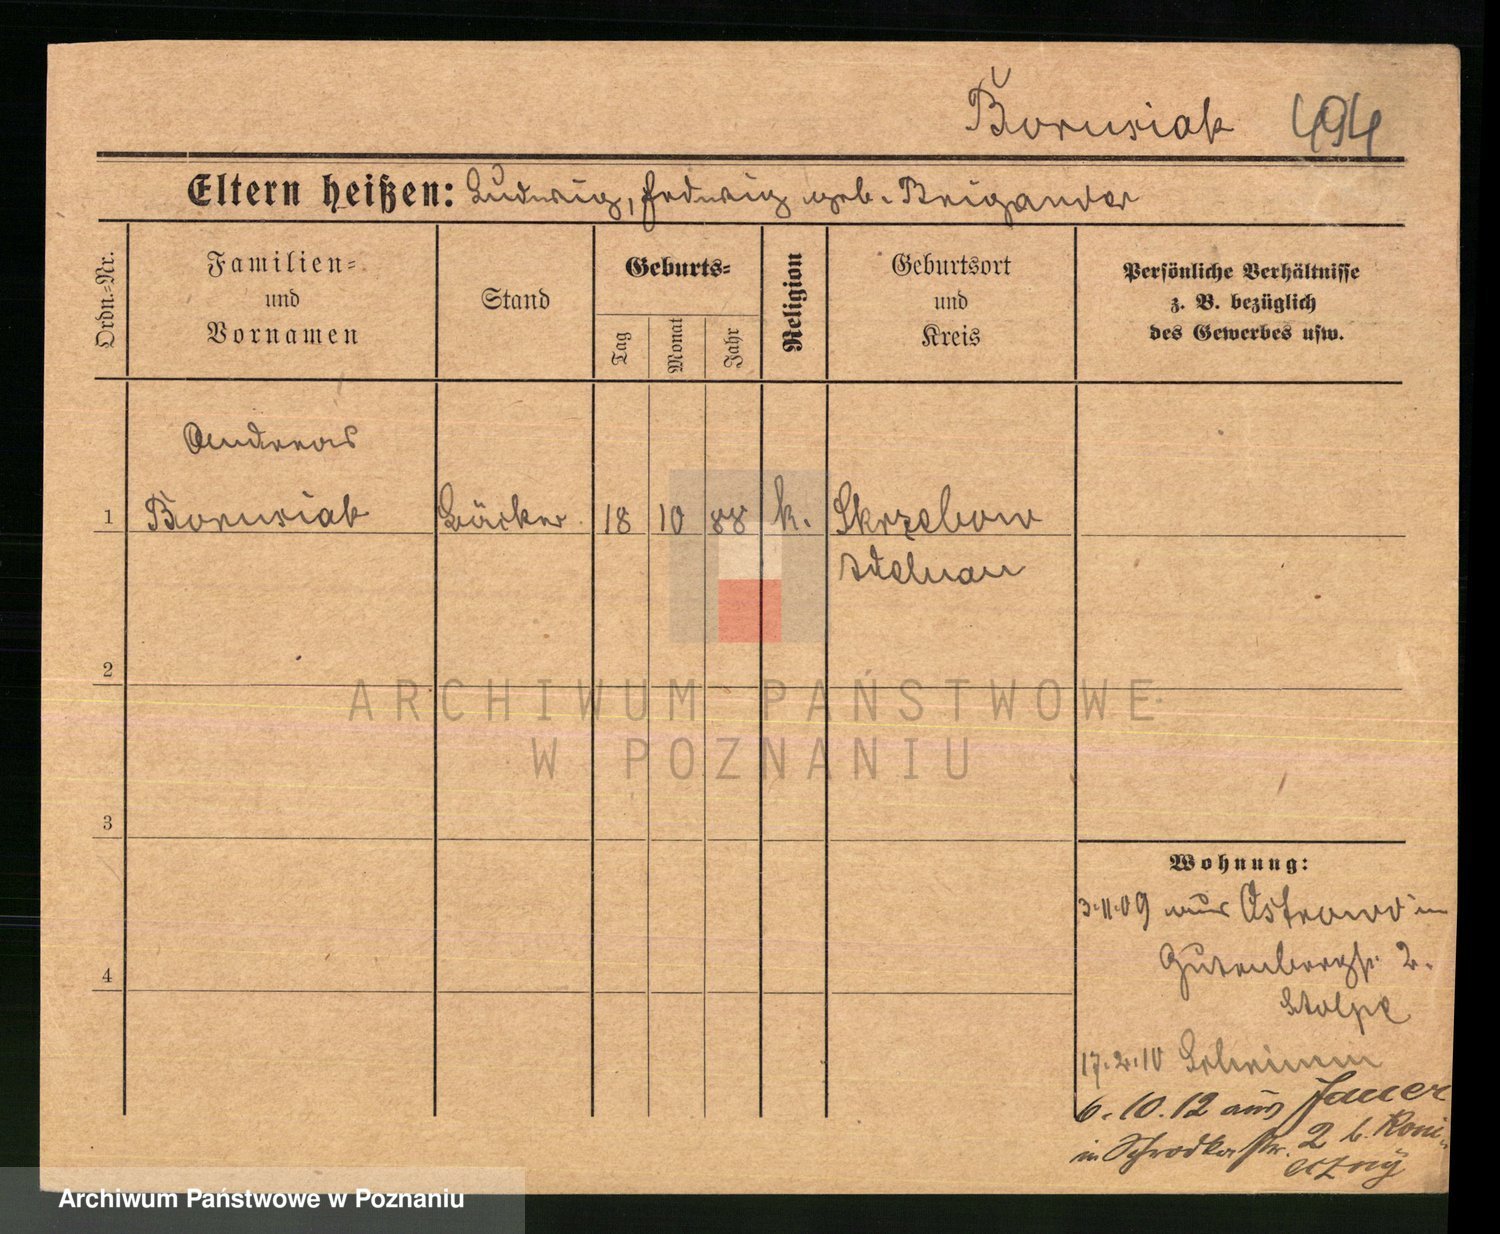 Borusiak 494
Eltern heißen: Ludwig, Hedwig geb. Brigander
Ordn.-Nr.
Familien-
und
Vornamen
Stand
Geburts-
Tag
Monat
Jahr
Religion
Geburtsort
und
Kreis
Persönliche Verhältnisse
z. B. bezüglich
des Gewerbes usw.
Andreas
1 Borusiak Bäcker 18 10 88 k. Skrzebow
Adelnau
2
3
4
Wohnung:
3.11.09 aus Ostrowo in
Gutenbergstr. 2.
Stolpe
17.2.10 Schrimm
6.10.12 aus Jauer
in Schrodkastr. 2 b. Koni-
eczny
ARCHIWUM PAŃSTWOWE
W POZNANIU
Archiwum Państwowe w Poznaniu